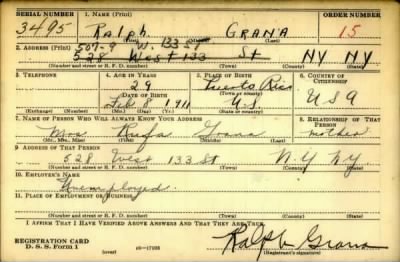 SERIAL NUMBER 1. NAME (Print) ORDER NUMBER
3495 RALPH GRANA 15
(First) (Middle) (Last)
2. ADDRESS (Print) 507-9 W. 133 ST
528 West 133 St NY NY
(Number and street or R. F. D. number) (Town) (County) (State)
3. TELEPHONE 4. AGE IN YEARS 5. PLACE OF BIRTH 6. COUNTRY OF CITIZENSHIP
29 Puerto Rico
DATE OF BIRTH (Town or county)
Feb 8 1911 U.S. USA
(Exchange) (Number) (Mo.) (Day) (Yr.) (State or country)
7. NAME OF PERSON WHO WILL ALWAYS KNOW YOUR ADDRESS 8. RELATIONSHIP OF THAT PERSON
Mrs Rufa Grana mother
(Mr., Mrs., Miss) (First) (Middle) (Last)
9. ADDRESS OF THAT PERSON
528 West 133 St N.Y. NY.
(Number and street or R. F. D. number) (Town) (County) (State)
10. EMPLOYER'S NAME
Unemployed
11. PLACE OF EMPLOYMENT OR BUSINESS
(Number and street or R. F. D. number) (Town) (County) (State)
I AFFIRM THAT I HAVE VERIFIED ABOVE ANSWERS AND THAT THEY ARE TRUE.
REGISTRATION CARD
D. S. S. Form 1 (over) Ralph Grana
(Registrant's signature)